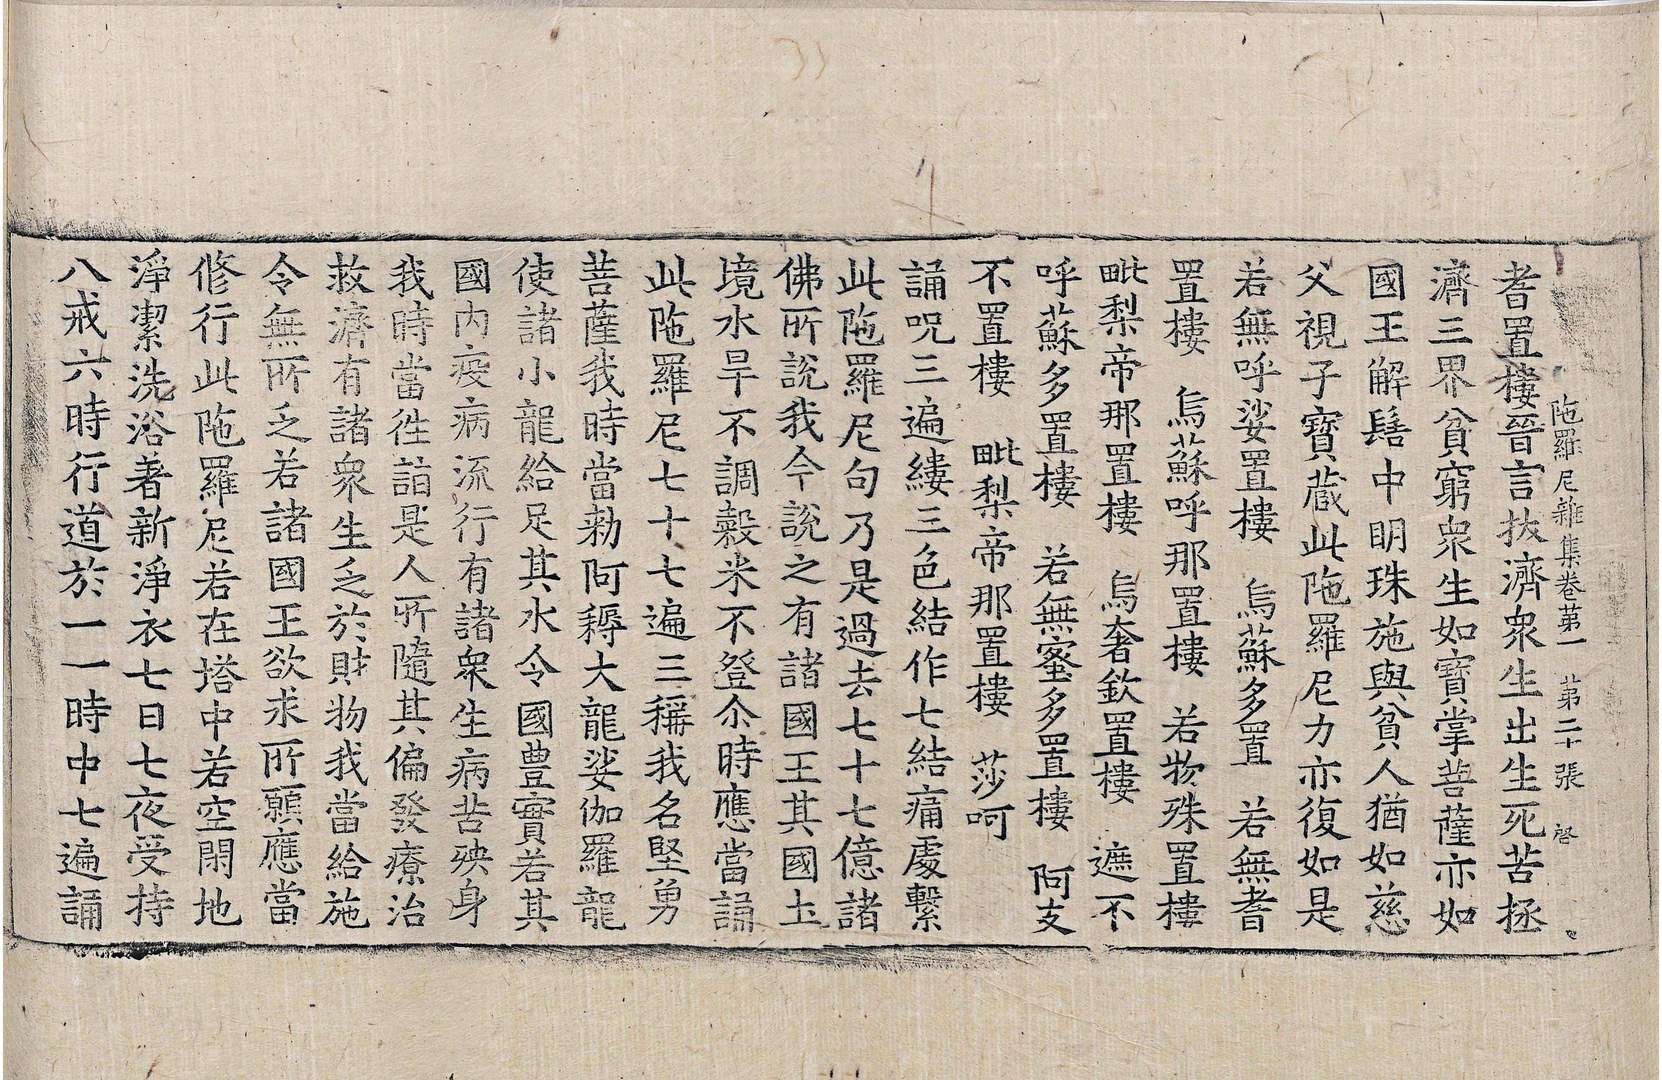 陁羅尼雜集卷苐一 苐二十張 啓
耆置樓晉言扶濟衆生出生死苦拯
濟三界貧窮衆生如寶掌菩薩亦如
國王解髻中明珠施與貧人猶如慈
父視子寶蔵此陁羅尼力亦復如是
若無呼娑置樓 烏蘇多置 若無耆
置樓 烏蘇呼那置樓 若物殊置樓
毗梨帝那置樓 烏奢欽置樓 遮不
呼蘇多置樓 若無蜜多置樓 阿支
不置樓 毗梨帝那置樓 莎呵
誦呪三遍縷三色結作七結痛處繫
此陁羅尼句乃是過去七十七億諸
佛所說我今說之有諸國王其國土
境水旱不調穀米不登尒時應當誦
此陁羅尼七十七遍三稱我名堅勇
菩薩我時當勑阿耨大龍娑伽羅龍
使諸小龍給足其水令國豊實若其
國內疫病流行有諸衆生病苦殃身
我時當徃詣是人所隨其偏發療治
救濟有諸衆生乏於財物我當給施
令無所乏若諸國王欲求所願應當
修行此陁羅尼若在塔中若空閑地
淨潔洗浴著新淨衣七日七夜受持
八戒六時行道於一一時中七遍誦